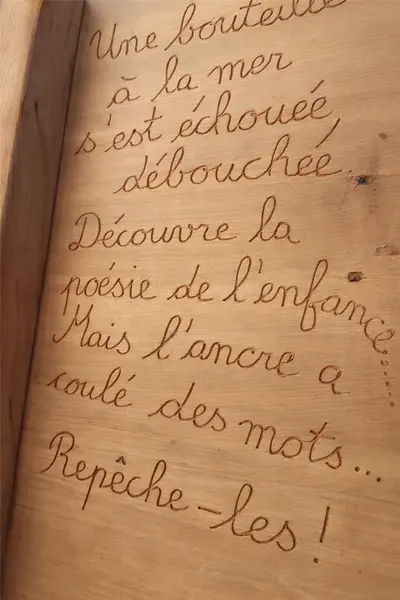 Une bouteille
à la mer
s'est échouée,
débouchée.
Découvre la
poésie de l'enfance......
Mais l'ancre a
coulé des mots...
Repêche-les !